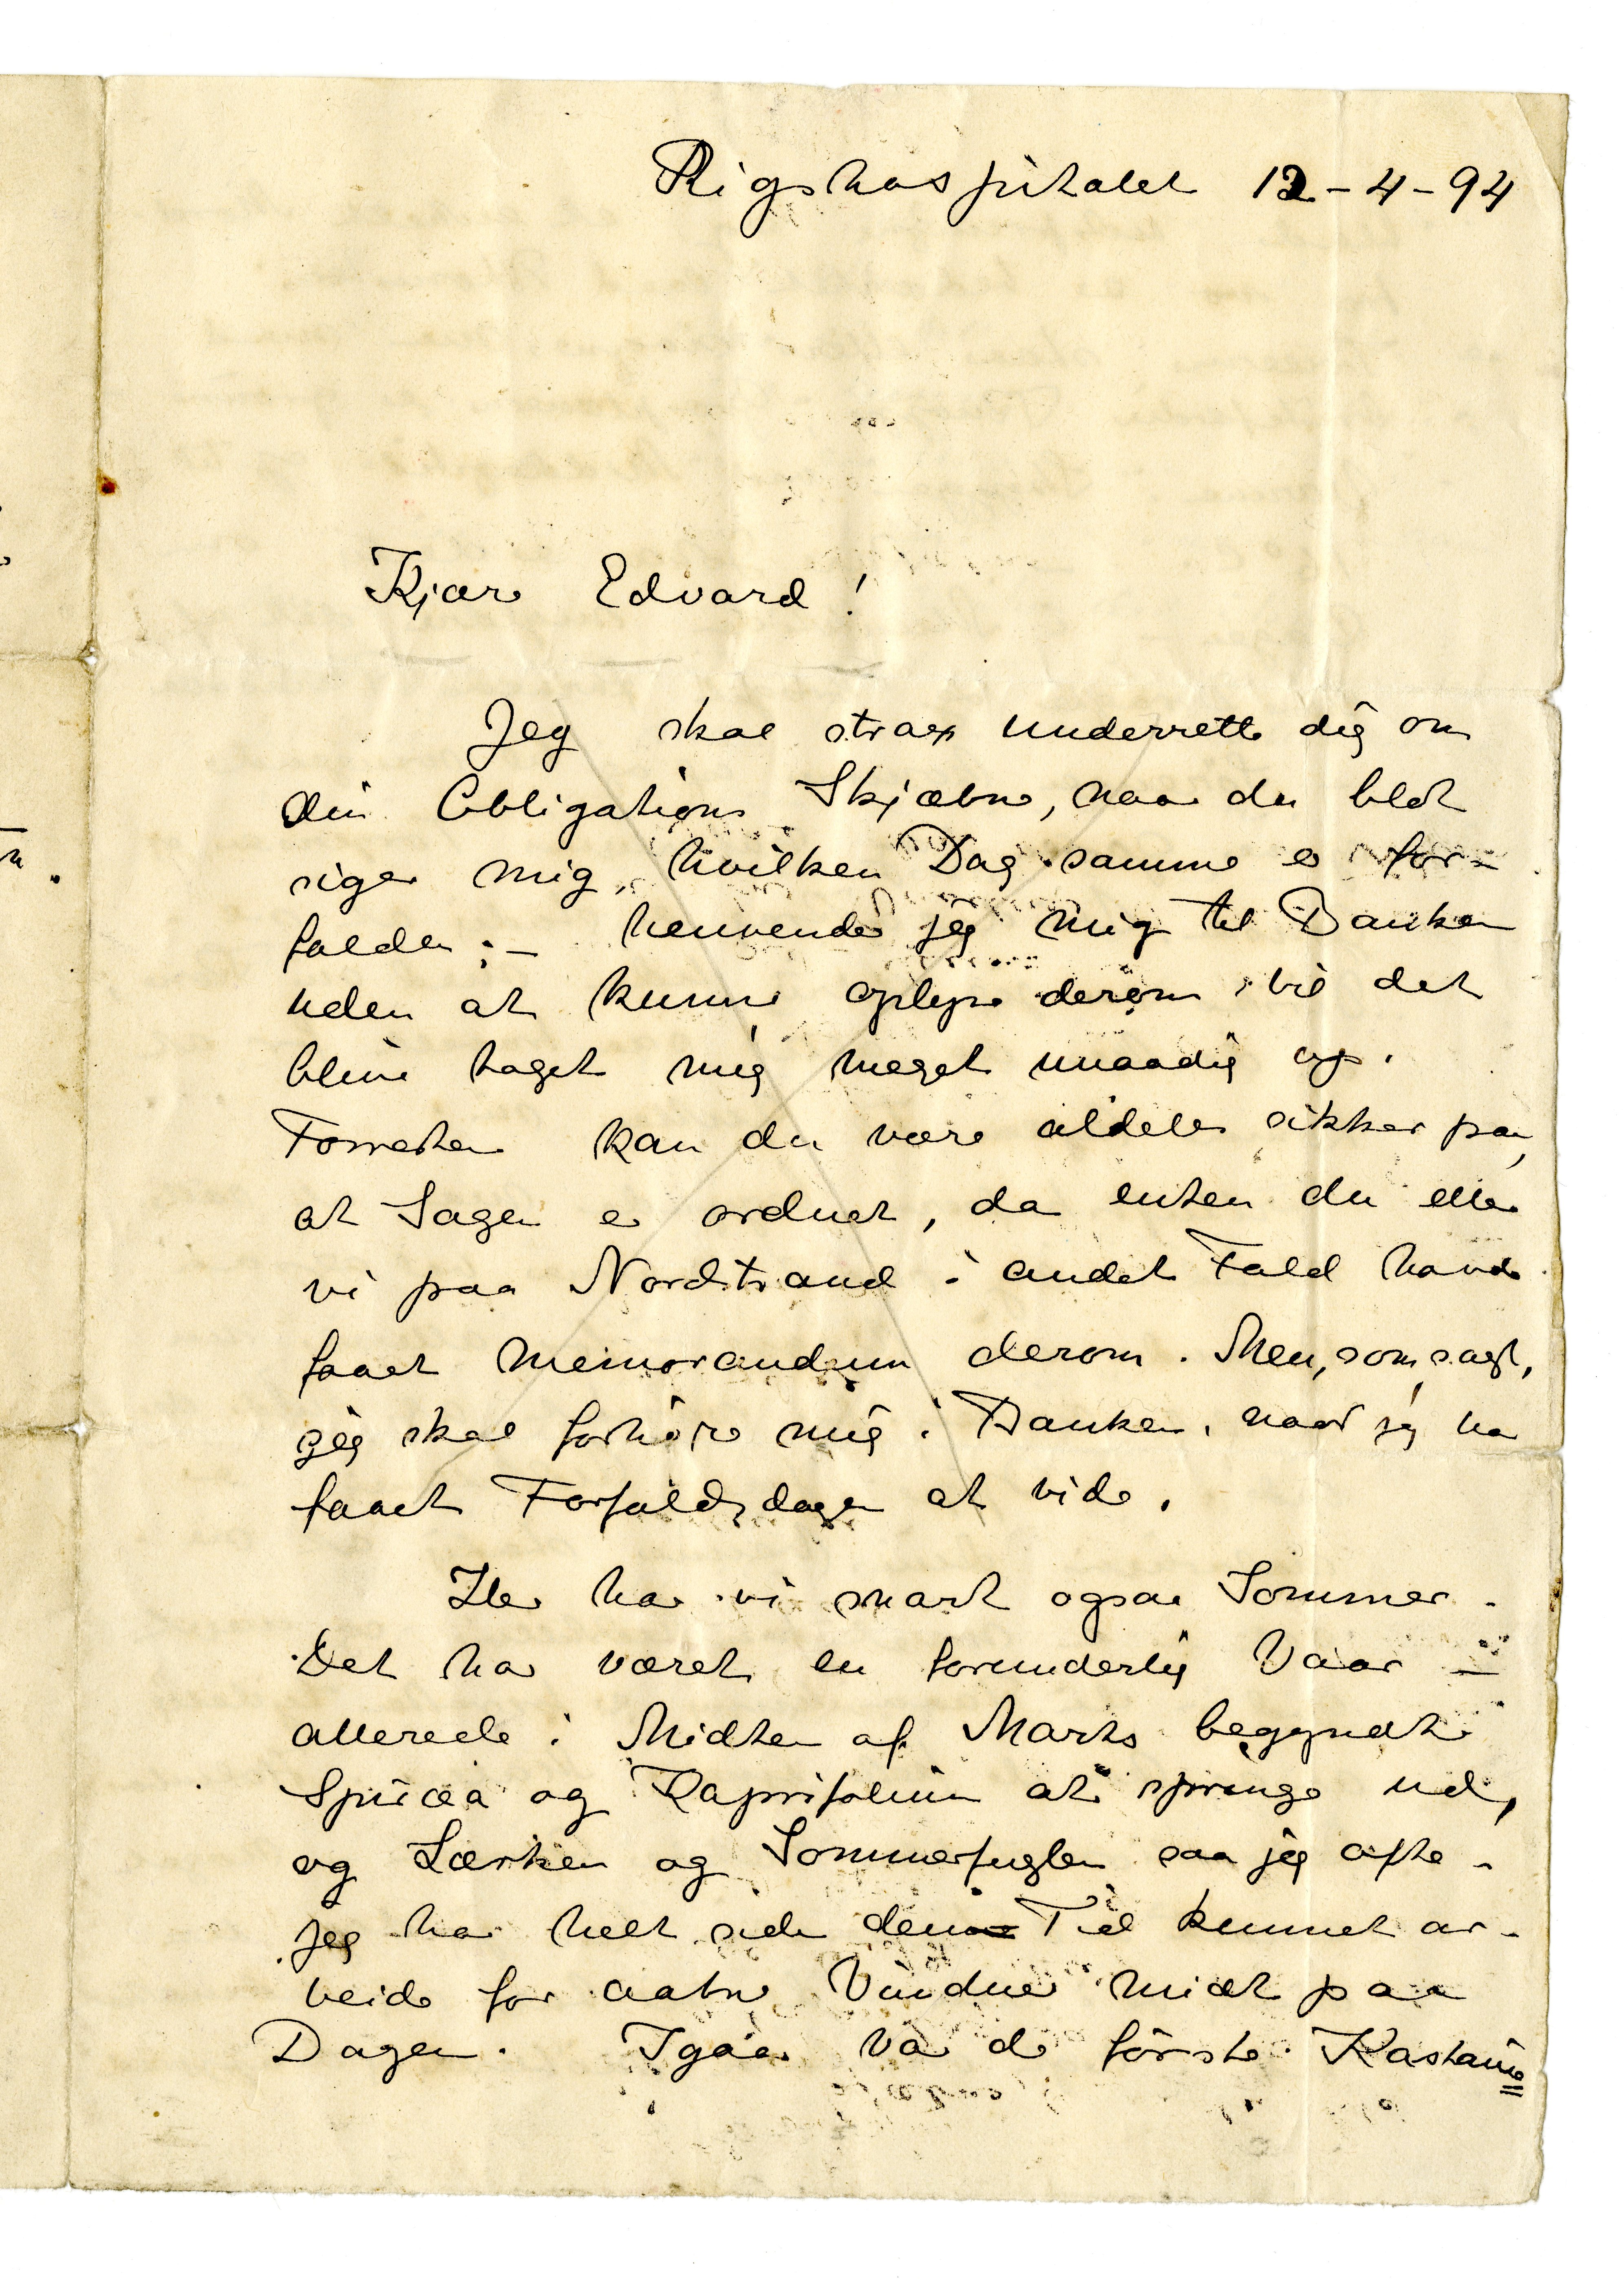 Rigshospitalet 12-4-94
Kjære Edvard!
Jeg skal strax underrette dig om
din Obligations Skjæbne, naar du blot
siger mig, hvilken Dag samme er for-
falden; – henvender jeg mig til Banken
uden at kunne oplyse derom vil det
blive taget mig meget unaadig op.
Forresten kan du være aldeles sikker paa,
at Sagen er ordnet, da enten du eller
vi paa Nordstrand i andet Fald havde
faaet Memorandum derom. Men, som sagt,
jeg skal forhøre mig i Banken, naar jeg har
faaet Forfaldsdagen at vide.
Her har vi snart ogsaa Sommer.
Det har været en forunderlig Vaar –
allerede i Midten af Marts begyndte
Spiræa og Kaprifolium at springe ud,
og Lærken og Sommerfuglen saa jeg ofte.
Jeg har helt siden den Tid kunnet ar-
beide for aabne Vinduer midt paa
Dagen. Igaar var de første Kastanie
n.